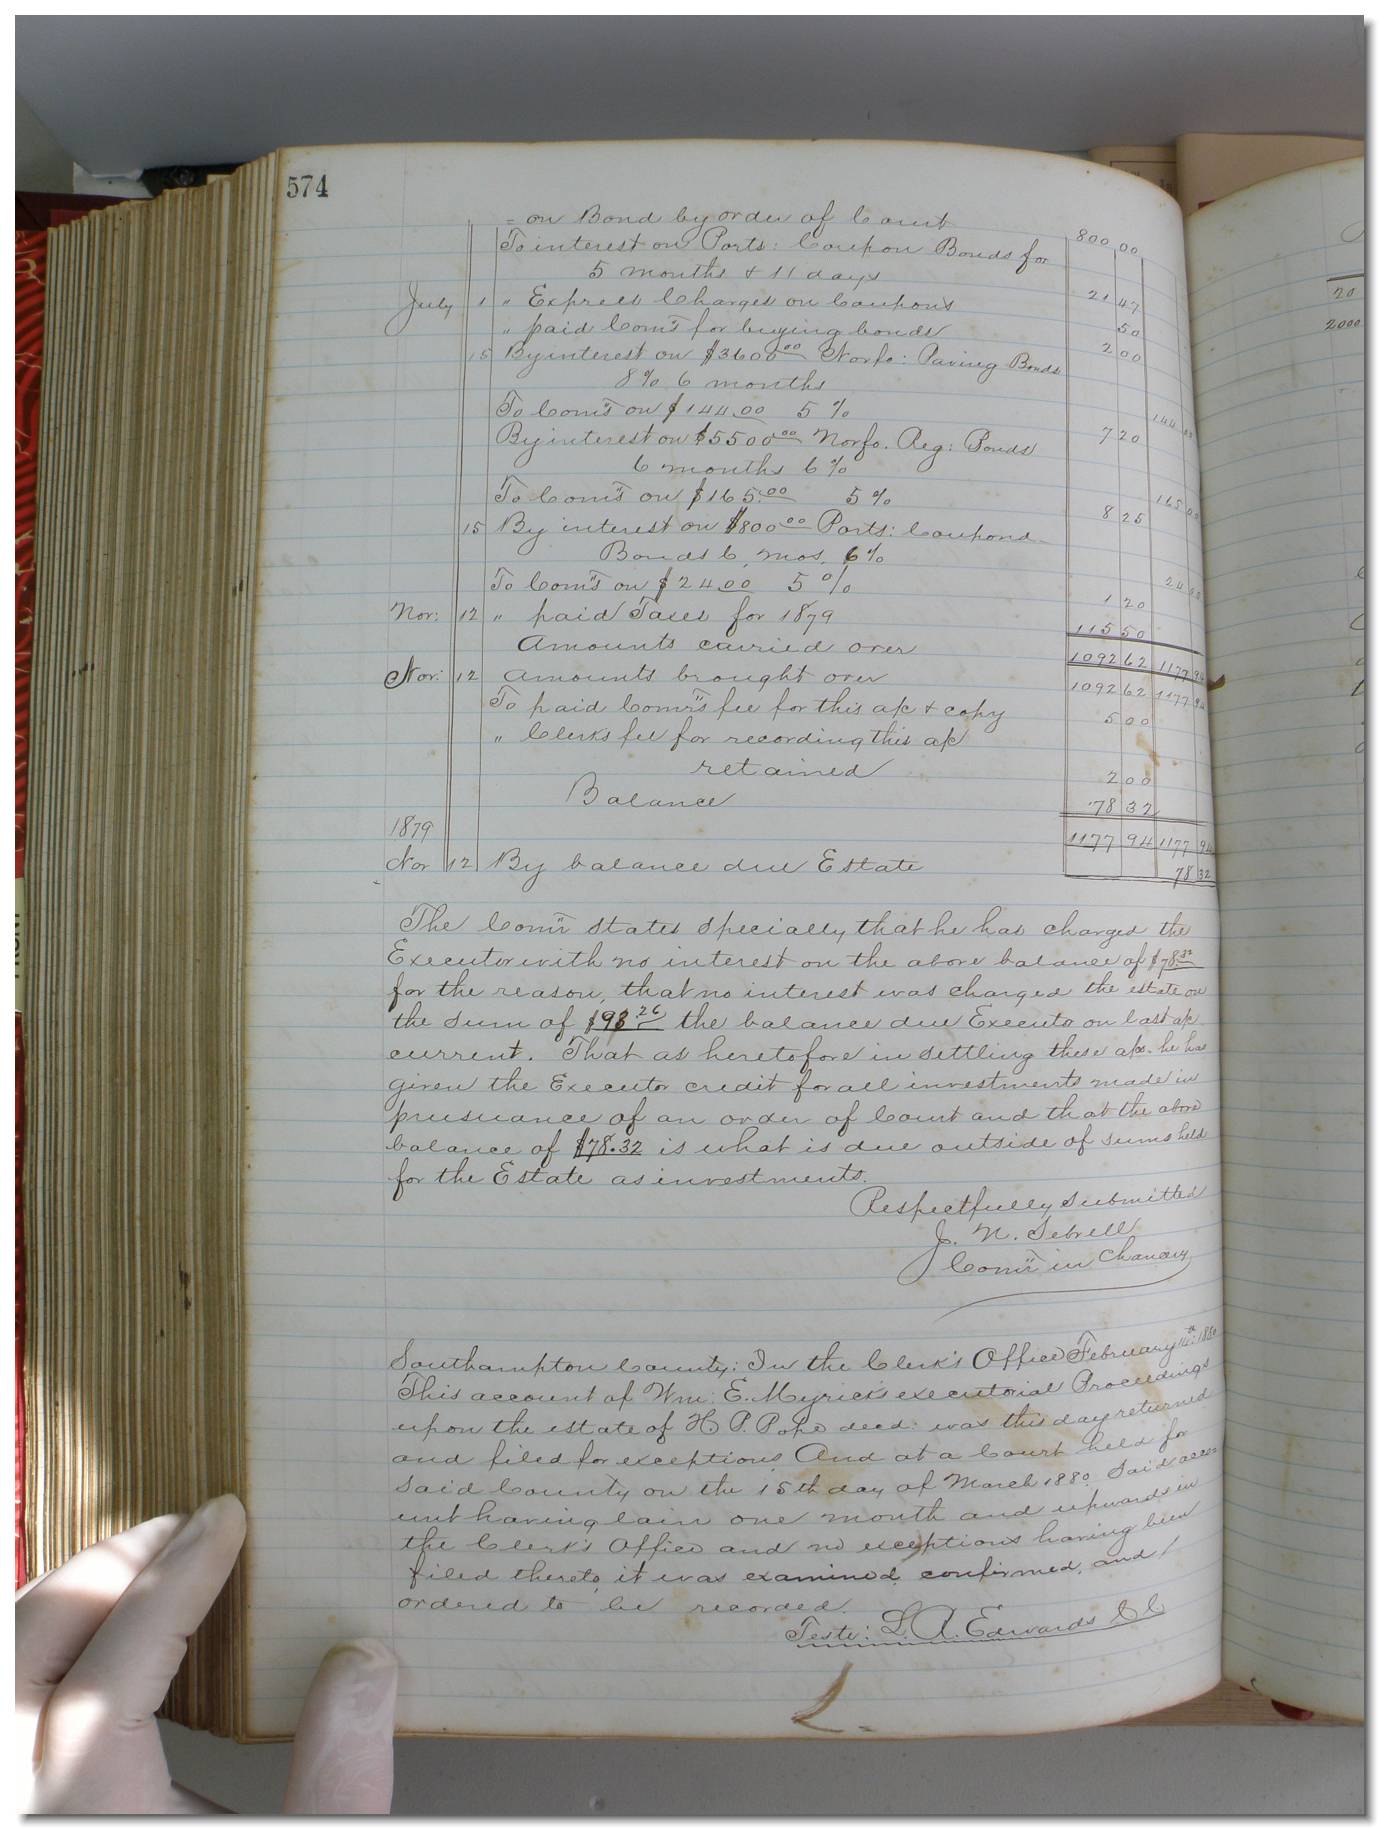 574
= on Bond by order of Court 800 00
To interest on Ports: Coupon Bonds for
5 months & 11 days 21 47
July 1 " Express Charges on Coupons 50
" paid Com's for buying bonds 2 00
15 By interest on $3600.00 Norfo: Paving Bonds
8% 6 months 144 00
To Com's on $144.00 5 % 7 20
By interest on $5500.00 Norfo. Reg: Bonds
6 months 6% 165 00
To Com's on $165.00 5 % 8 25
15 By interest on $800.00 Ports: Coupond
Bonds 6 mos. 6% 24 00
To Com's on $24.00 5 % 1 20
Nov: 12 " paid Taxes for 1879 115 50
Amounts carried over 1092 62 1177 94
Nov: 12 Amounts brought over 1092 62 1177 94
To paid Comr's fee for this a/c & copy 5 00
" Clerks fee for recording this a/c
retained 2 00
Balance 78 32
1879 1177 94 1177 94
Nov 12 By balance due Estate 78 32
The Comr states specially that he has charged the
Executor with no interest on the above balance of $78.32
for the reason, that no interest was charged the estate on
the sum of $93.26 the balance due Executo on last a/c
current. That as heretofore in settling these a/cs. he has
given the Executor credit for all investments made in
prusuance of an order of Court and that the above
balance of $78.32 is what is due outside of sums held
for the Estate as investments.
Respectfully Submitted
J. N. Sebrell
Comr in Chancery
Southampton County: In the Clerk's Office February 11th: 1880
This account of Wm: E. Myrick's executorial Proceedings
upon the estate of H. P. Pope decd: was this day returned
and filed for exceptions, And at a Court held for
Said County on the 15th day of March 1880. Said acco-
unt having lain one month and upwards in
the Clerk's Office and no exceptions having been
filed thereto, it was examined, confirmed, and
ordered to be recorded.
Teste: L. A. Edwards C C
20
2000